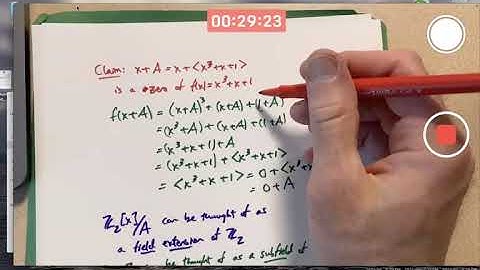 00:29:23
Claim: x+A = x + <x³+x+1>
is a zero of f(x) = x³+x+1
f(x+A) = (x+A)³ + (x+A) + (1+A)
= (x³+A) + (x+A) + (1+A)
= (x³+x+1) + A
= (x³+x+1) + <x³+x+1>
= <x³+x+1> = 0 + <x³+x
= 0 + A
ℤ₂[x]/A can be thought of as
a field extension of ℤ₂
be thought of as a subfield of